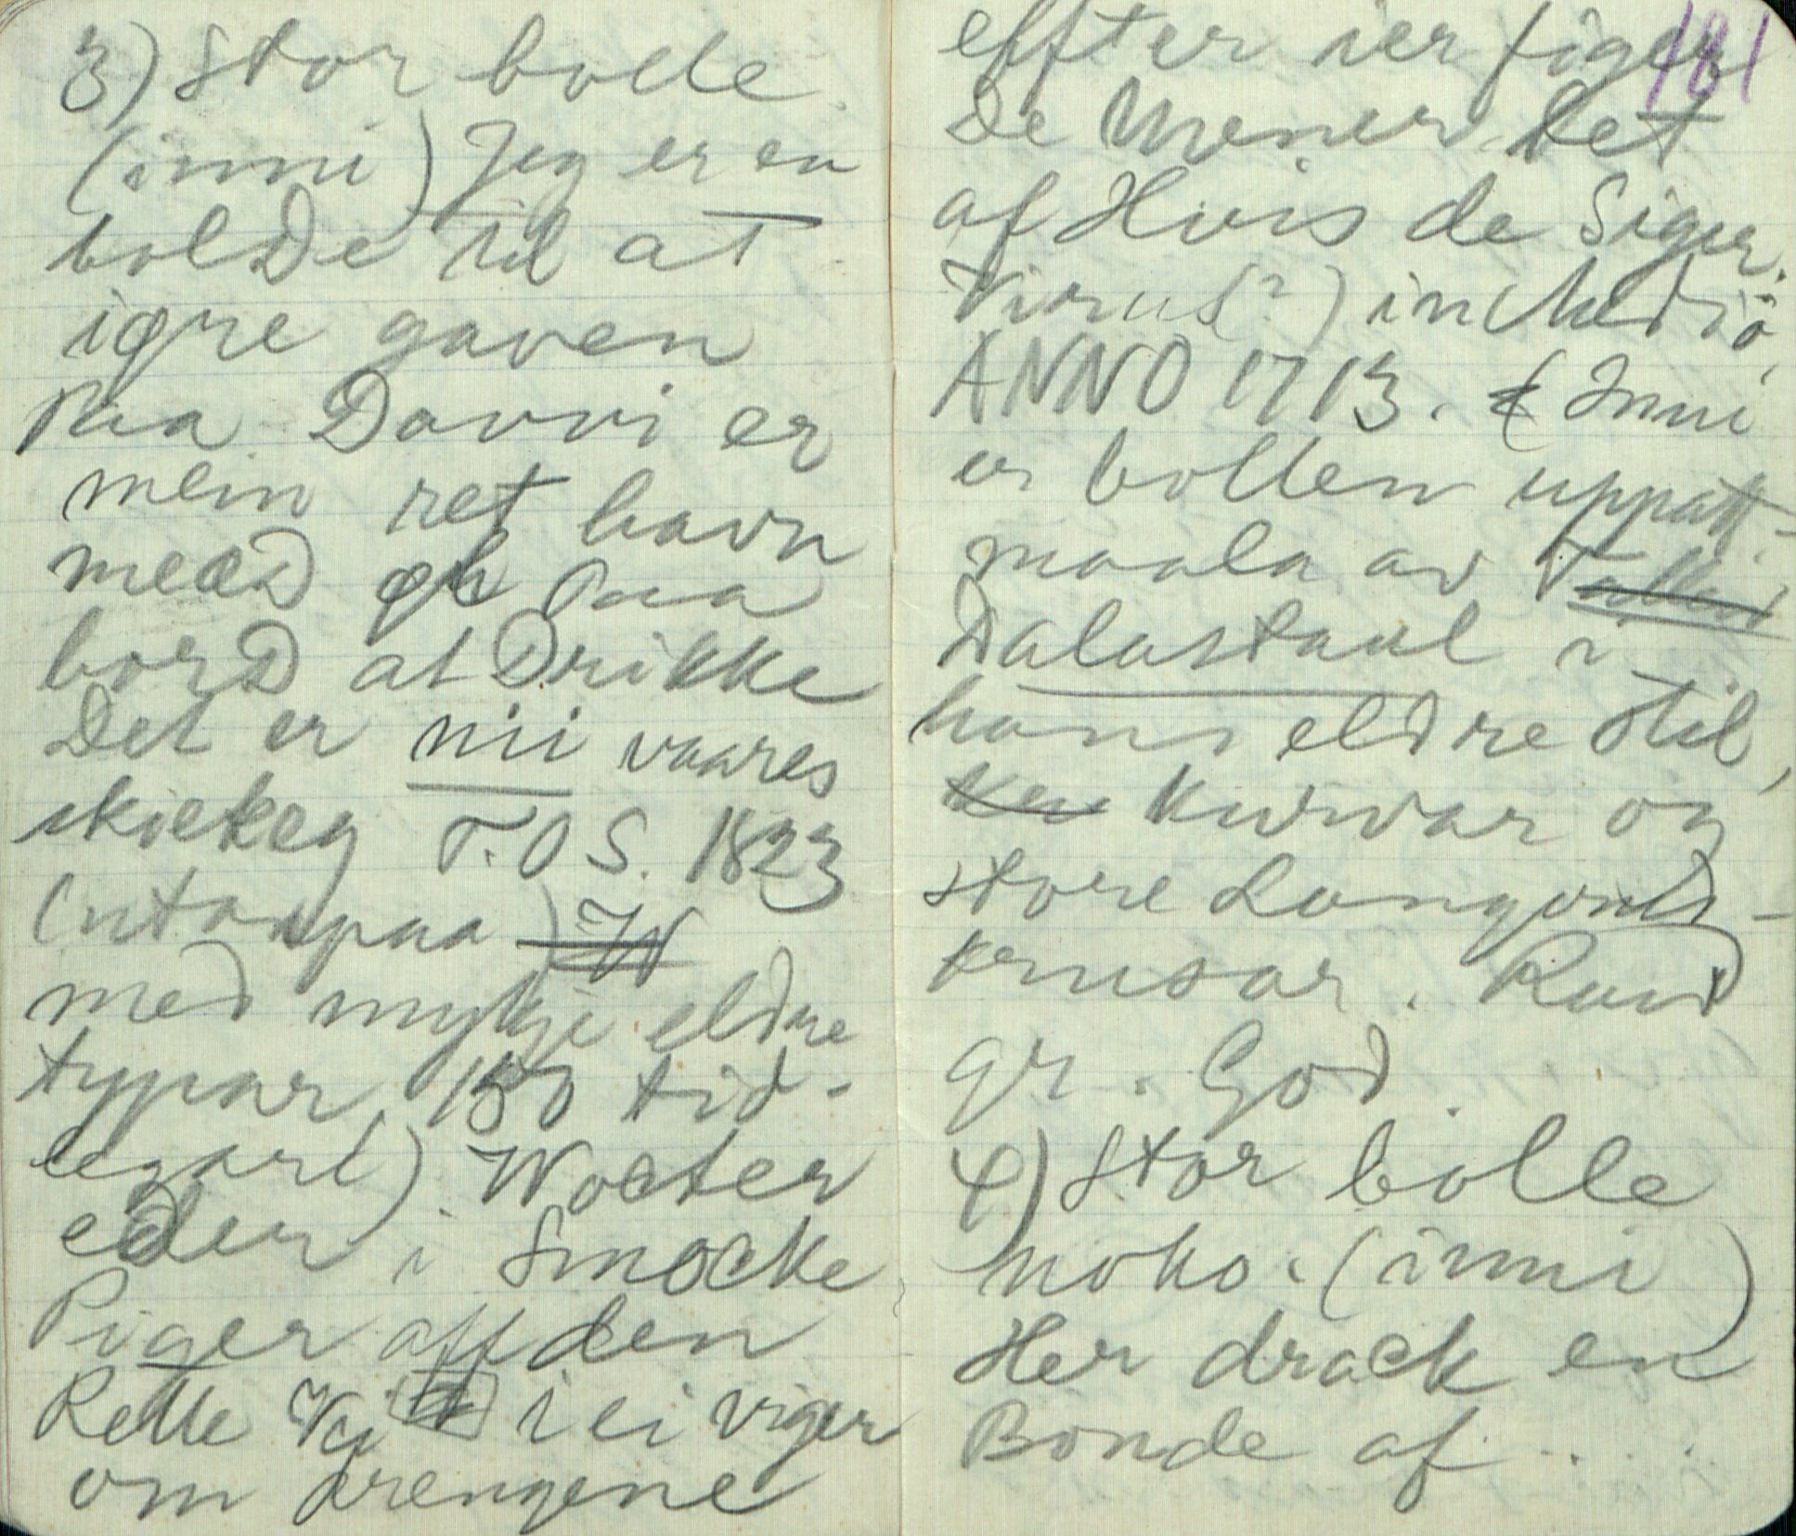 3) Stor bolle.
(inni) Jeg er en
bolde til at
igre gaven
Paa Davvi er
mein ret havn
meds øh Paa
borD at Drikke
Det er nii vaares
skickey T.O S. 1823
(utanpaa)
med mykje eldre
typar, 150 tid-
legare). Wocter
eder i Smocke
Piger aff den
Rette Vej i ei viger
om drengene
effter ier figer
De Mener Det
af Hvis de Siger.
Virus(?) in Medio,
ANNO 1713. (Inni
er bollen uppatt-
maala av
Dalastaul i
hans eldre stil,
kurvar og
store Langords-
krusar. Raud
gr. God.
4) Stor bolle
noko. (inni)
Her drack en
Bonde af . . .
181